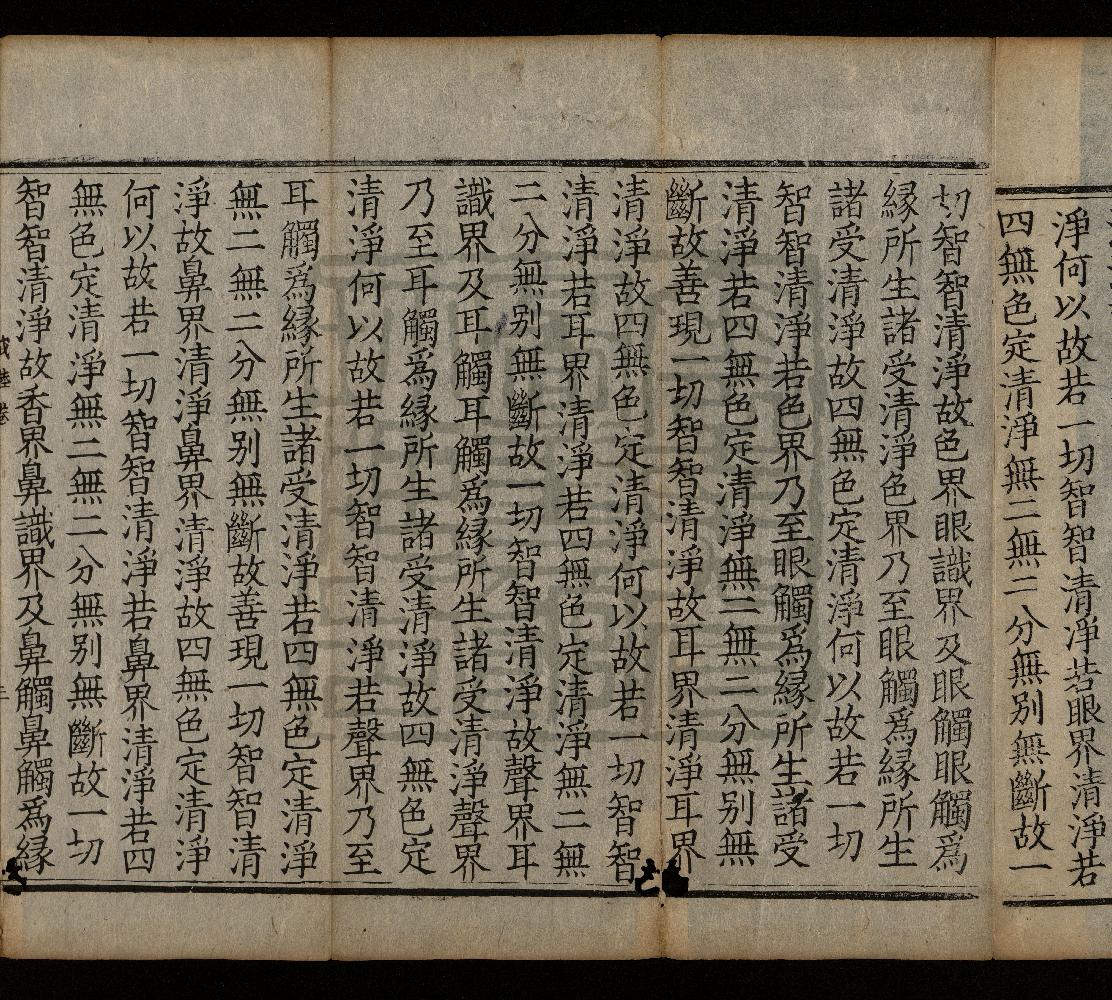 淨何以故若一切智智清淨若眼界清淨若
四無色定清淨無二無二分無別無斷故一
切智智清淨故色界眼識界及眼觸眼觸爲
緣所生諸受清淨色界乃至眼觸爲緣所生
諸受清淨故四無色定清淨何以故若一切
智智清淨若色界乃至眼觸爲緣所生諸受
清淨若四無色定清淨無二無二分無別無
斷故善現一切智智清淨故耳界清淨耳界
清淨故四無色定清淨何以故若一切智智
清淨若耳界清淨若四無色定清淨無二無
二分無別無斷故一切智智清淨故聲界耳
識界及耳觸耳觸爲緣所生諸受清淨聲界
乃至耳觸爲緣所生諸受清淨故四無色定
清淨何以故若一切智智清淨若聲界乃至
耳觸爲緣所生諸受清淨若四無色定清淨
無二無二分無別無斷故善現一切智智清
淨故鼻界清淨鼻界清淨故四無色定清淨
何以故若一切智智清淨若鼻界清淨若四
無色定清淨無二無二分無別無斷故一切
智智清淨故香界鼻識界及鼻觸鼻觸爲緣